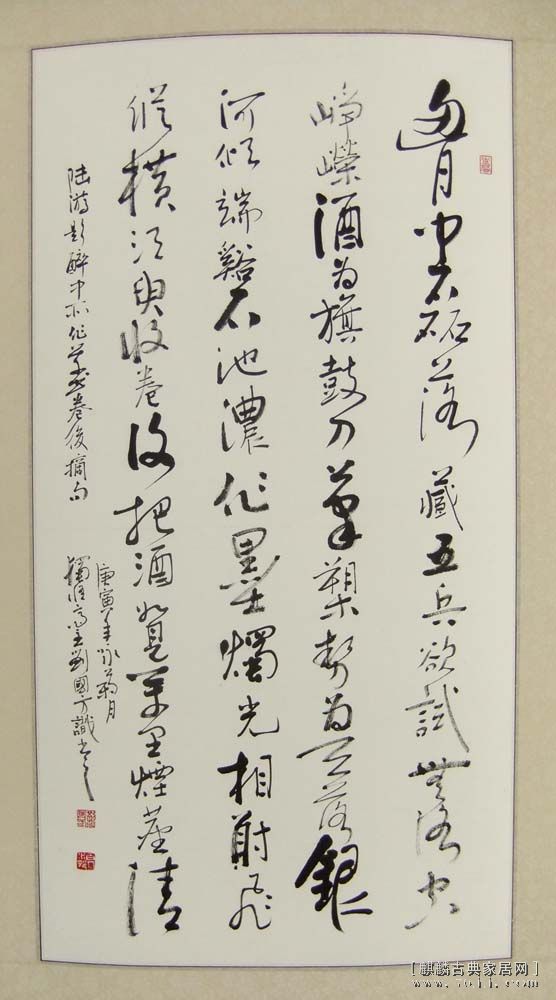 胷中磊落藏五兵欲試無路空
崢嶸酒為旗鼓刀筆槊勢為天落銀
河傾端谿石池濃作墨燭光相射飛
縱橫須臾收卷復把酒如見萬里煙塵清
陸游題醉中所作草書卷後摘句
庚寅年詠菊月
劉國方識
[麒麟古典家居网]